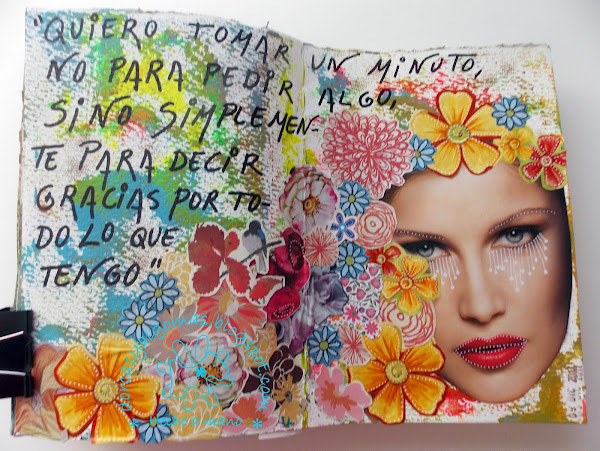 "QUIERO TOMAR UN MINUTO,
NO PARA PEDIR ALGO,
SINO SIMPLEMEN-
TE PARA DECIR
GRACIAS POR TO-
DO LO QUE
TENGO"